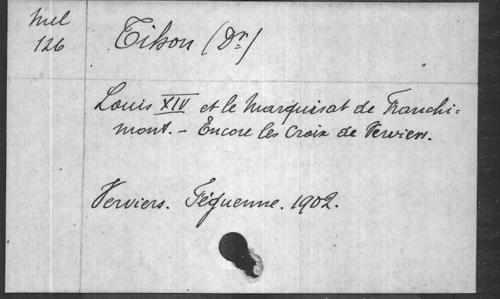 Mel
126
Tihon (Dr)
Louis XIV et le Marquisat de Franchi=
mont. - Encore les Croix de Verviers.
Verviers. Féguenne. 1902.